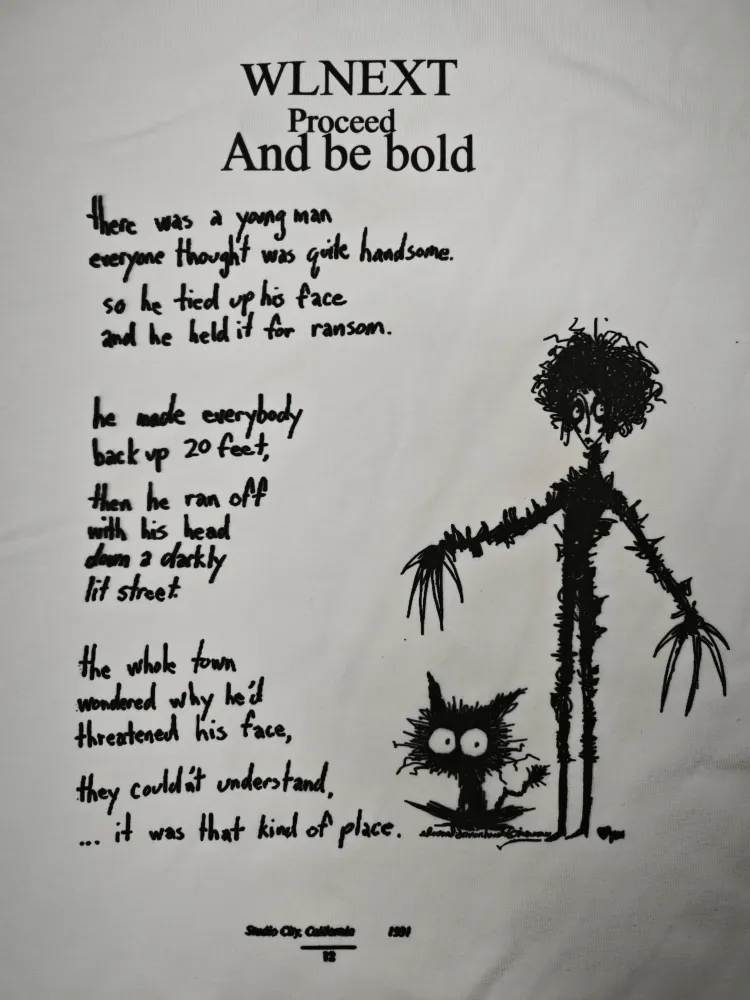 WLNEXT
Proceed
And be bold
there was a young man
everyone thought was quite handsome.
so he tied up his face
and he held it for ransom.
he made everybody
back up 20 feet,
then he ran off
with his head
down a darkly
lit street.
the whole town
wondered why he'd
threatened his face,
they couldn't understand,
... it was that kind of place.
Studio City, California 1991
12